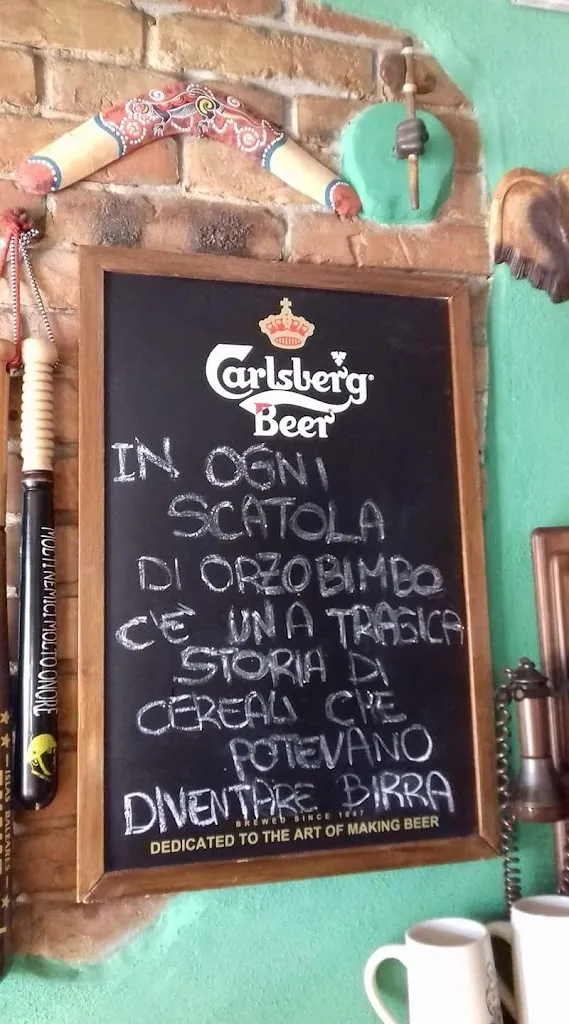 Carlsberg
Beer
IN OGNI
SCATOLA
DI ORZOBIMBO
C'È UNA TRAGICA
STORIA DI
CEREALI CHE
POTEVANO
DIVENTARE BIRRA
BREWED SINCE 1847
DEDICATED TO THE ART OF MAKING BEER
MOLTI NEMICI MOLTO ONORE
ISLAS BALEARES